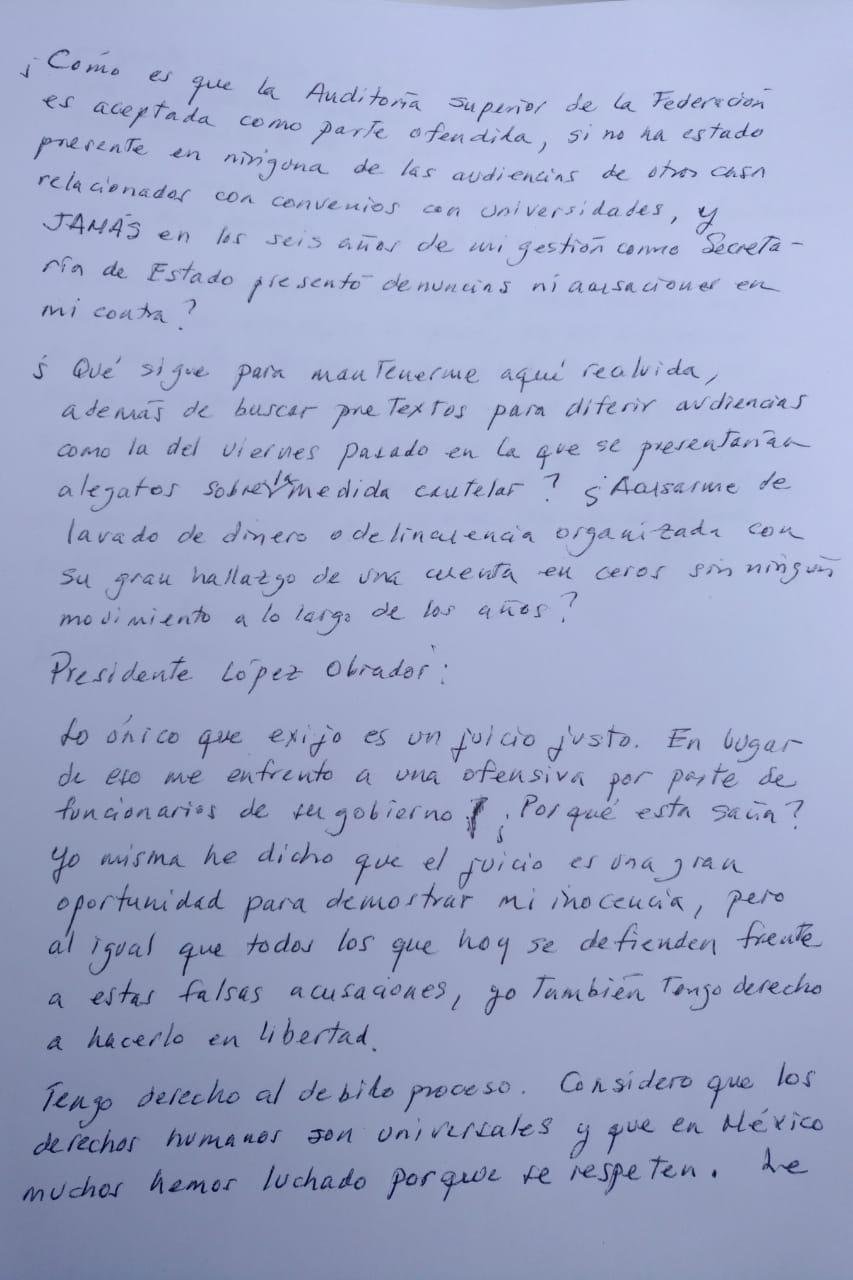 ¿Cómo es que la Auditoría Superior de la Federación
es aceptada como parte ofendida, si no ha estado
presente en ninguna de las audiencias de otros casos
relacionados con convenios con universidades, y
JAMÁS en los seis años de mi gestión como Secreta-
ría de Estado presentó denuncias ni acusaciones en
mi contra?
¿Qué sigue para mantenerme aquí recluida,
además de buscar pretextos para diferir audiencias
como la del viernes pasado en la que se presentarían
alegatos sobre la medida cautelar? ¿Acusarme de
lavado de dinero o delincuencia organizada con
su gran hallazgo de una cuenta en ceros sin ningún
movimiento a lo largo de los años?
Presidente López Obrador:
Lo único que exijo es un juicio justo. En lugar
de eso me enfrento a una ofensiva por parte de
funcionarios de su gobierno. ¿Por qué esta saña?
Yo misma he dicho que el juicio es una gran
oportunidad para demostrar mi inocencia, pero
al igual que todos los que hoy se defienden frente
a estas falsas acusaciones, yo también tengo derecho
a hacerlo en libertad.
Tengo derecho al debido proceso. Considero que los
derechos humanos son universales y que en México
muchos hemos luchado porque se respeten. Le